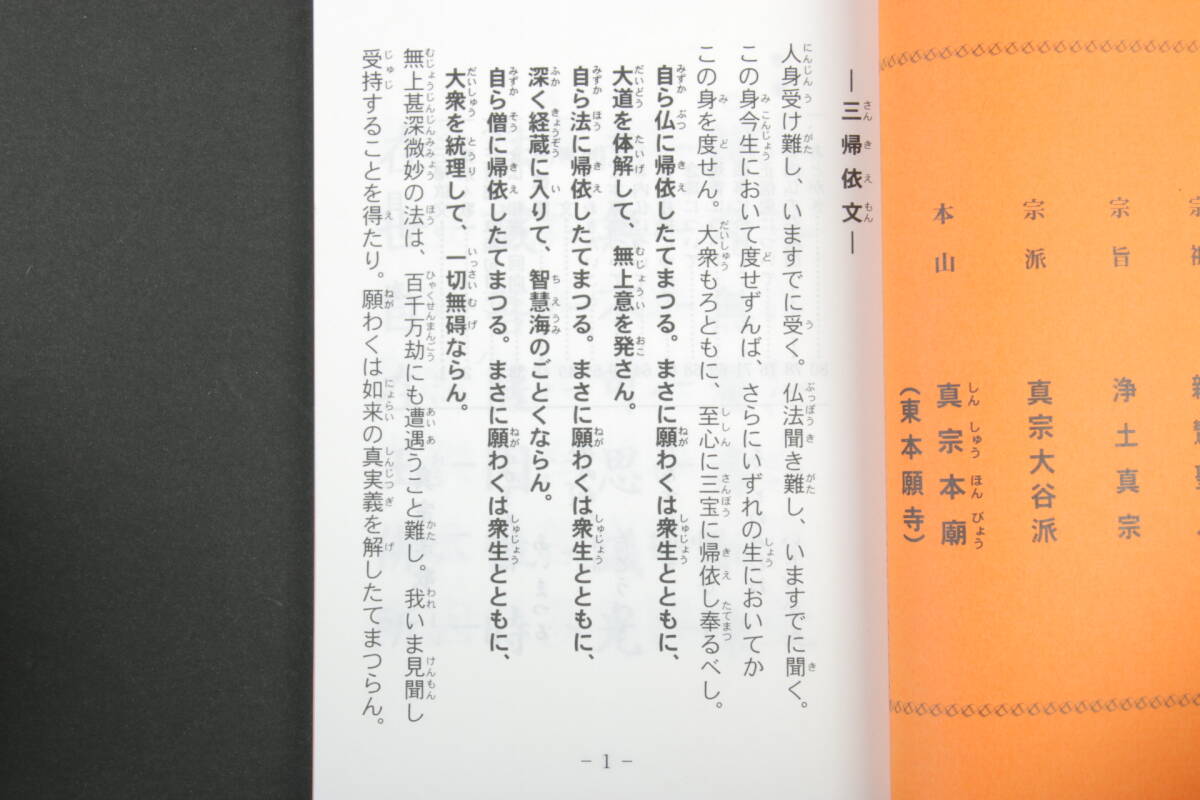 宗旨　浄土真宗
宗派　真宗大谷派
本山　真宗本廟
（東本願寺）
―三帰依文―
人身受け難し、いますでに受く。仏法聞き難し、いますでに聞く。
この身今生において度せずんば、さらにいずれの生においてか
この身を度せん。大衆もろともに、至心に三宝に帰依し奉るべし。
自ら仏に帰依したてまつる。まさに願わくは衆生とともに、
大道を体解して、無上意を発さん。
自ら法に帰依したてまつる。まさに願わくは衆生とともに、
深く経蔵に入りて、智慧海のごとくならん。
自ら僧に帰依したてまつる。まさに願わくは衆生とともに、
大衆を統理して、一切無碍ならん。
無上甚深微妙の法は、百千万劫にも遭遇うこと難し。我いま見聞し
受持することを得たり。願わくは如来の真実義を解したてまつらん。
- 1 -